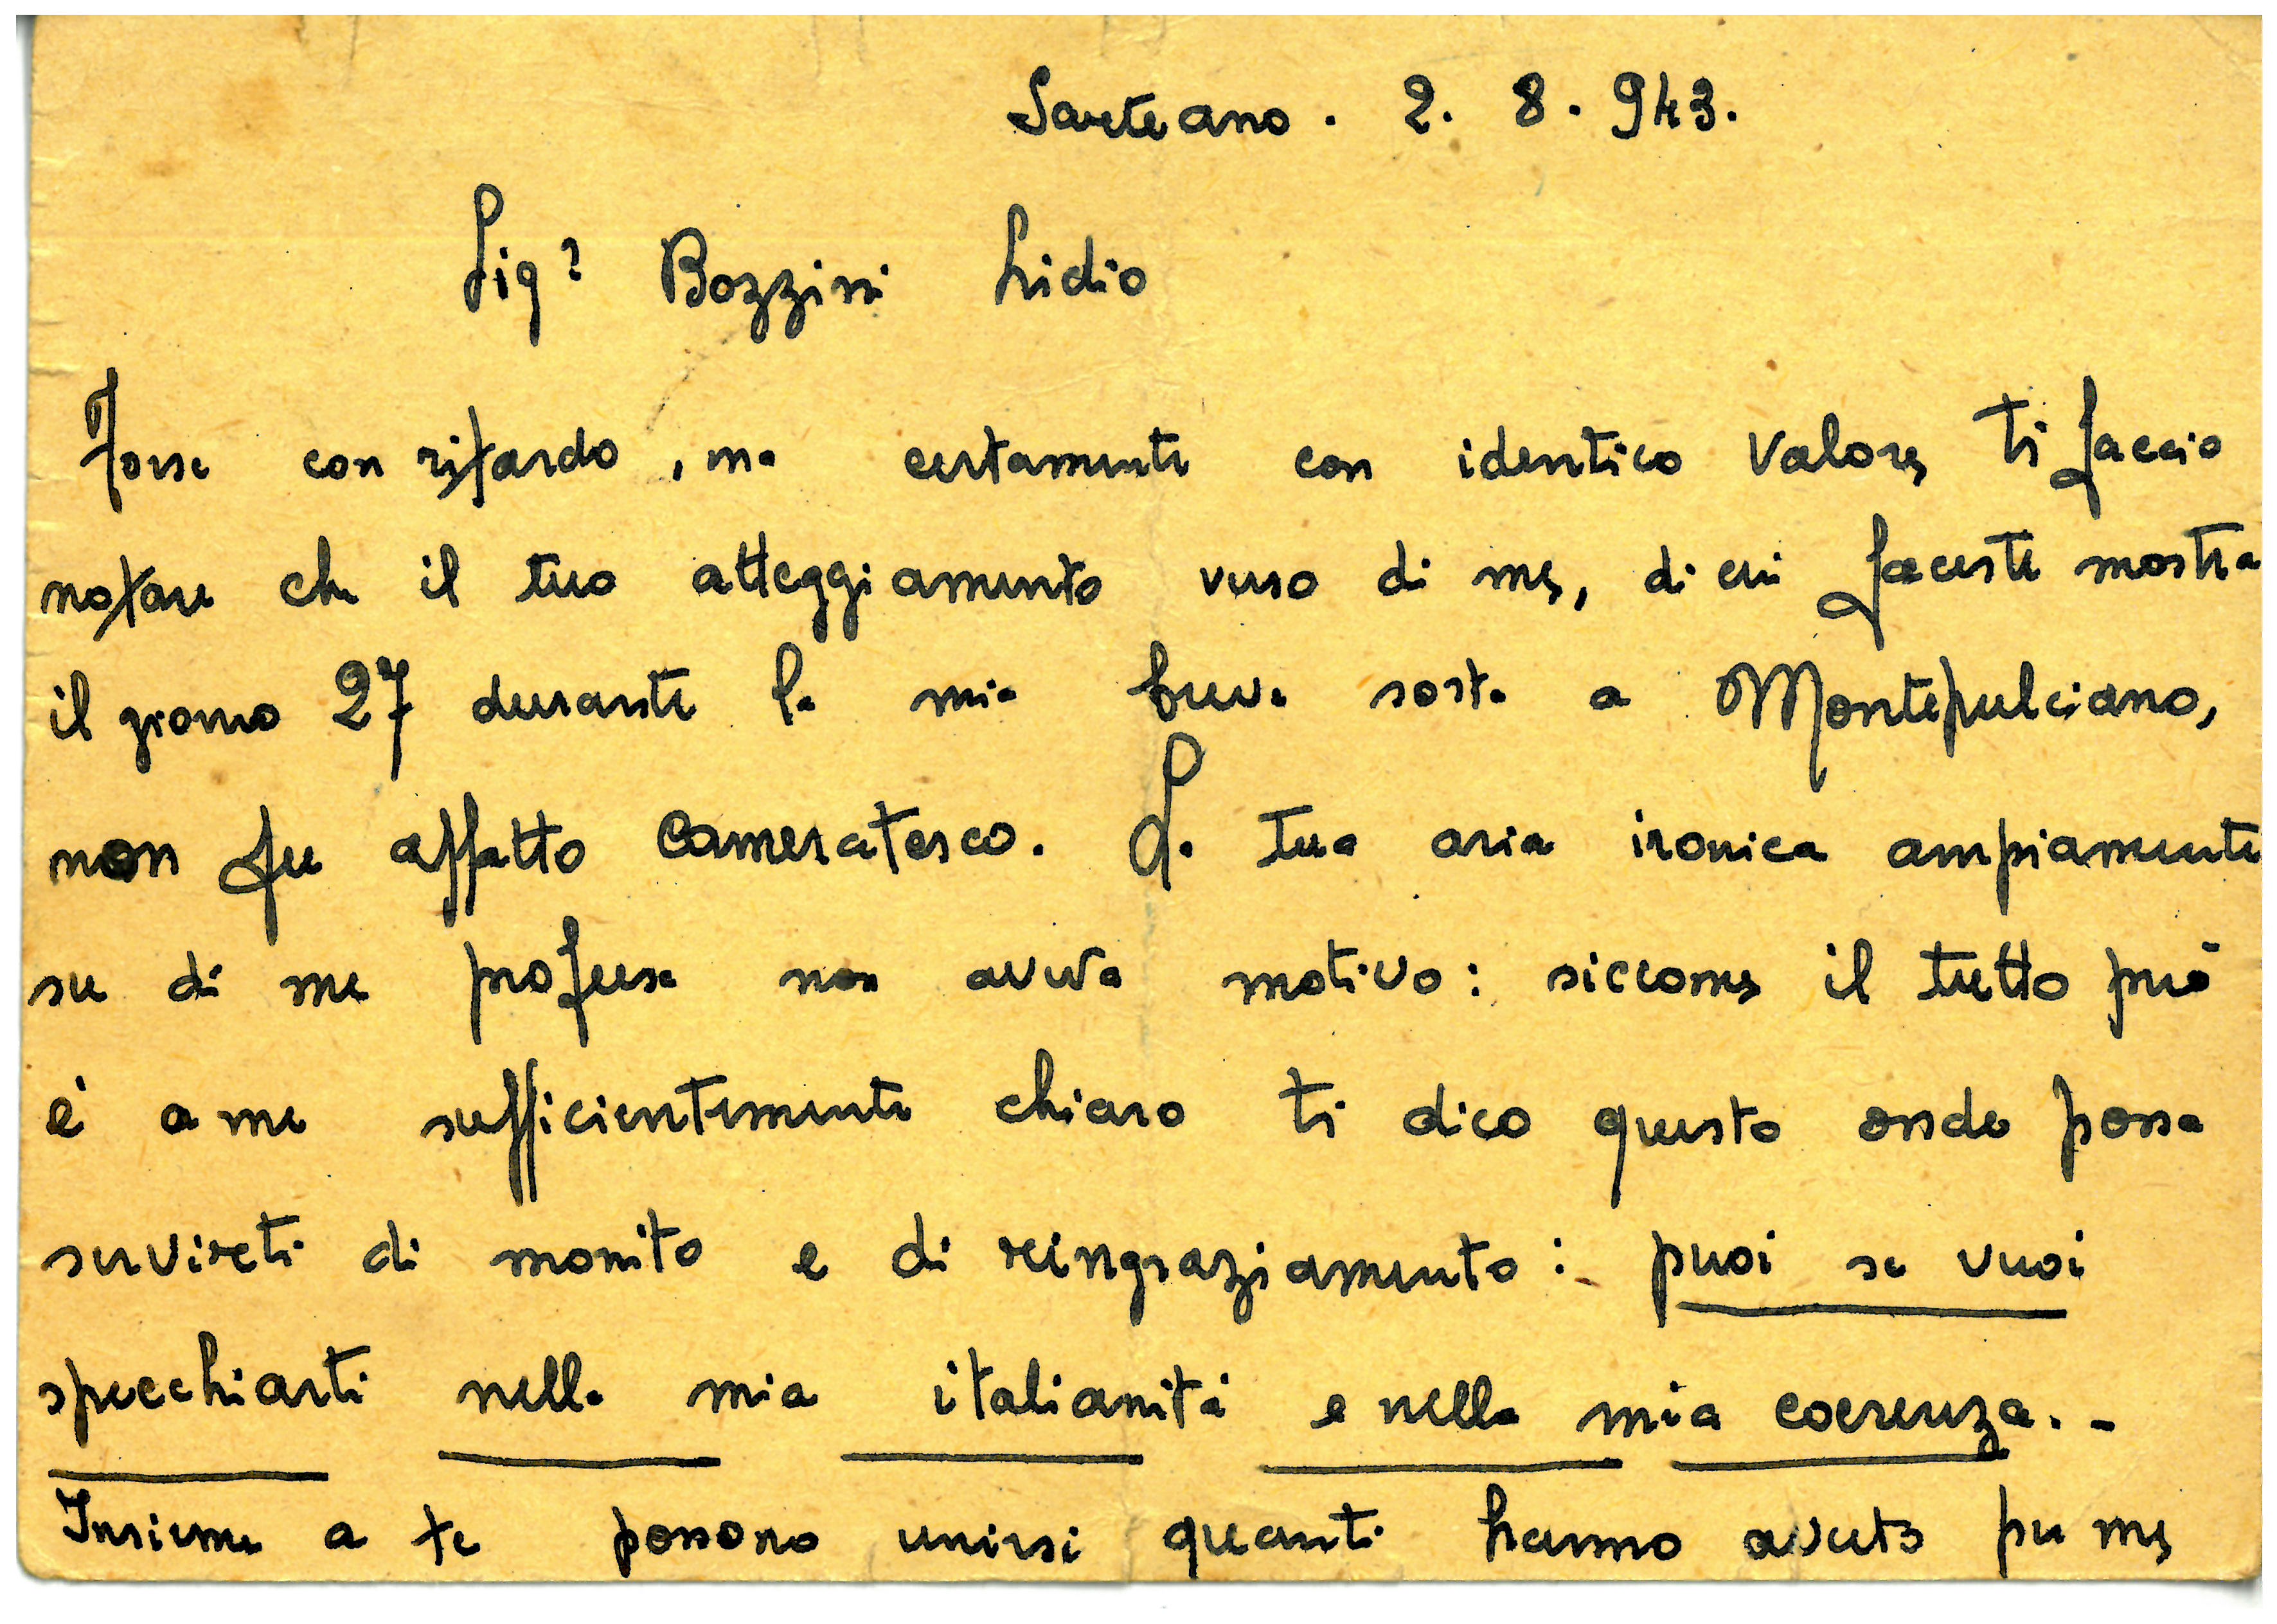 Sarteano . 2. 8. 943.
Sigr Bozzini Lidio
Forse con ritardo, ma certamente con identico valore, ti faccio
notare che il tuo atteggiamento verso di me, di cui faceste mostra
il giorno 27 durante la mia breve sosta a Montepulciano,
non fu affatto cameratesco. La tua aria ironica ampiamente
su di me profusa non aveva motivo: siccome il tutto però
è a me sufficientemente chiaro ti dico questo onde possa
servireti di monito e di ringraziamento: puoi se vuoi
specchiarti nella mia italianità e nella mia coerenza. -
Insieme a te possono unirsi quanti hanno avuto per me